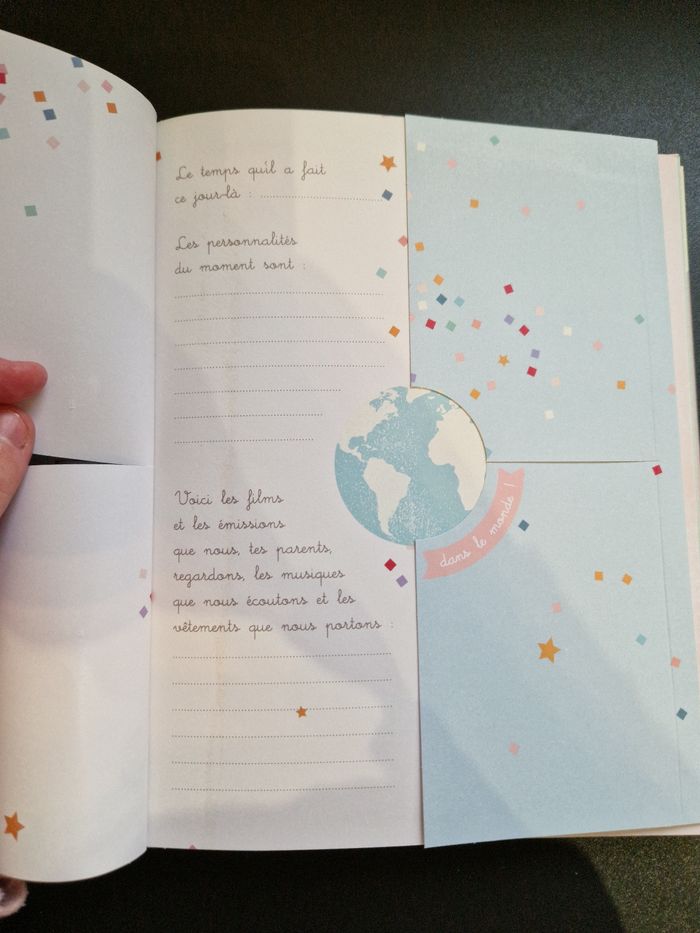 Le temps qu'il a fait
ce jour-là :
Les personnalités
du moment sont :
Voici les films
et les émissions
que nous, tes parents,
regardons, les musiques
que nous écoutons et les
vêtements que nous portons :
dans le monde !